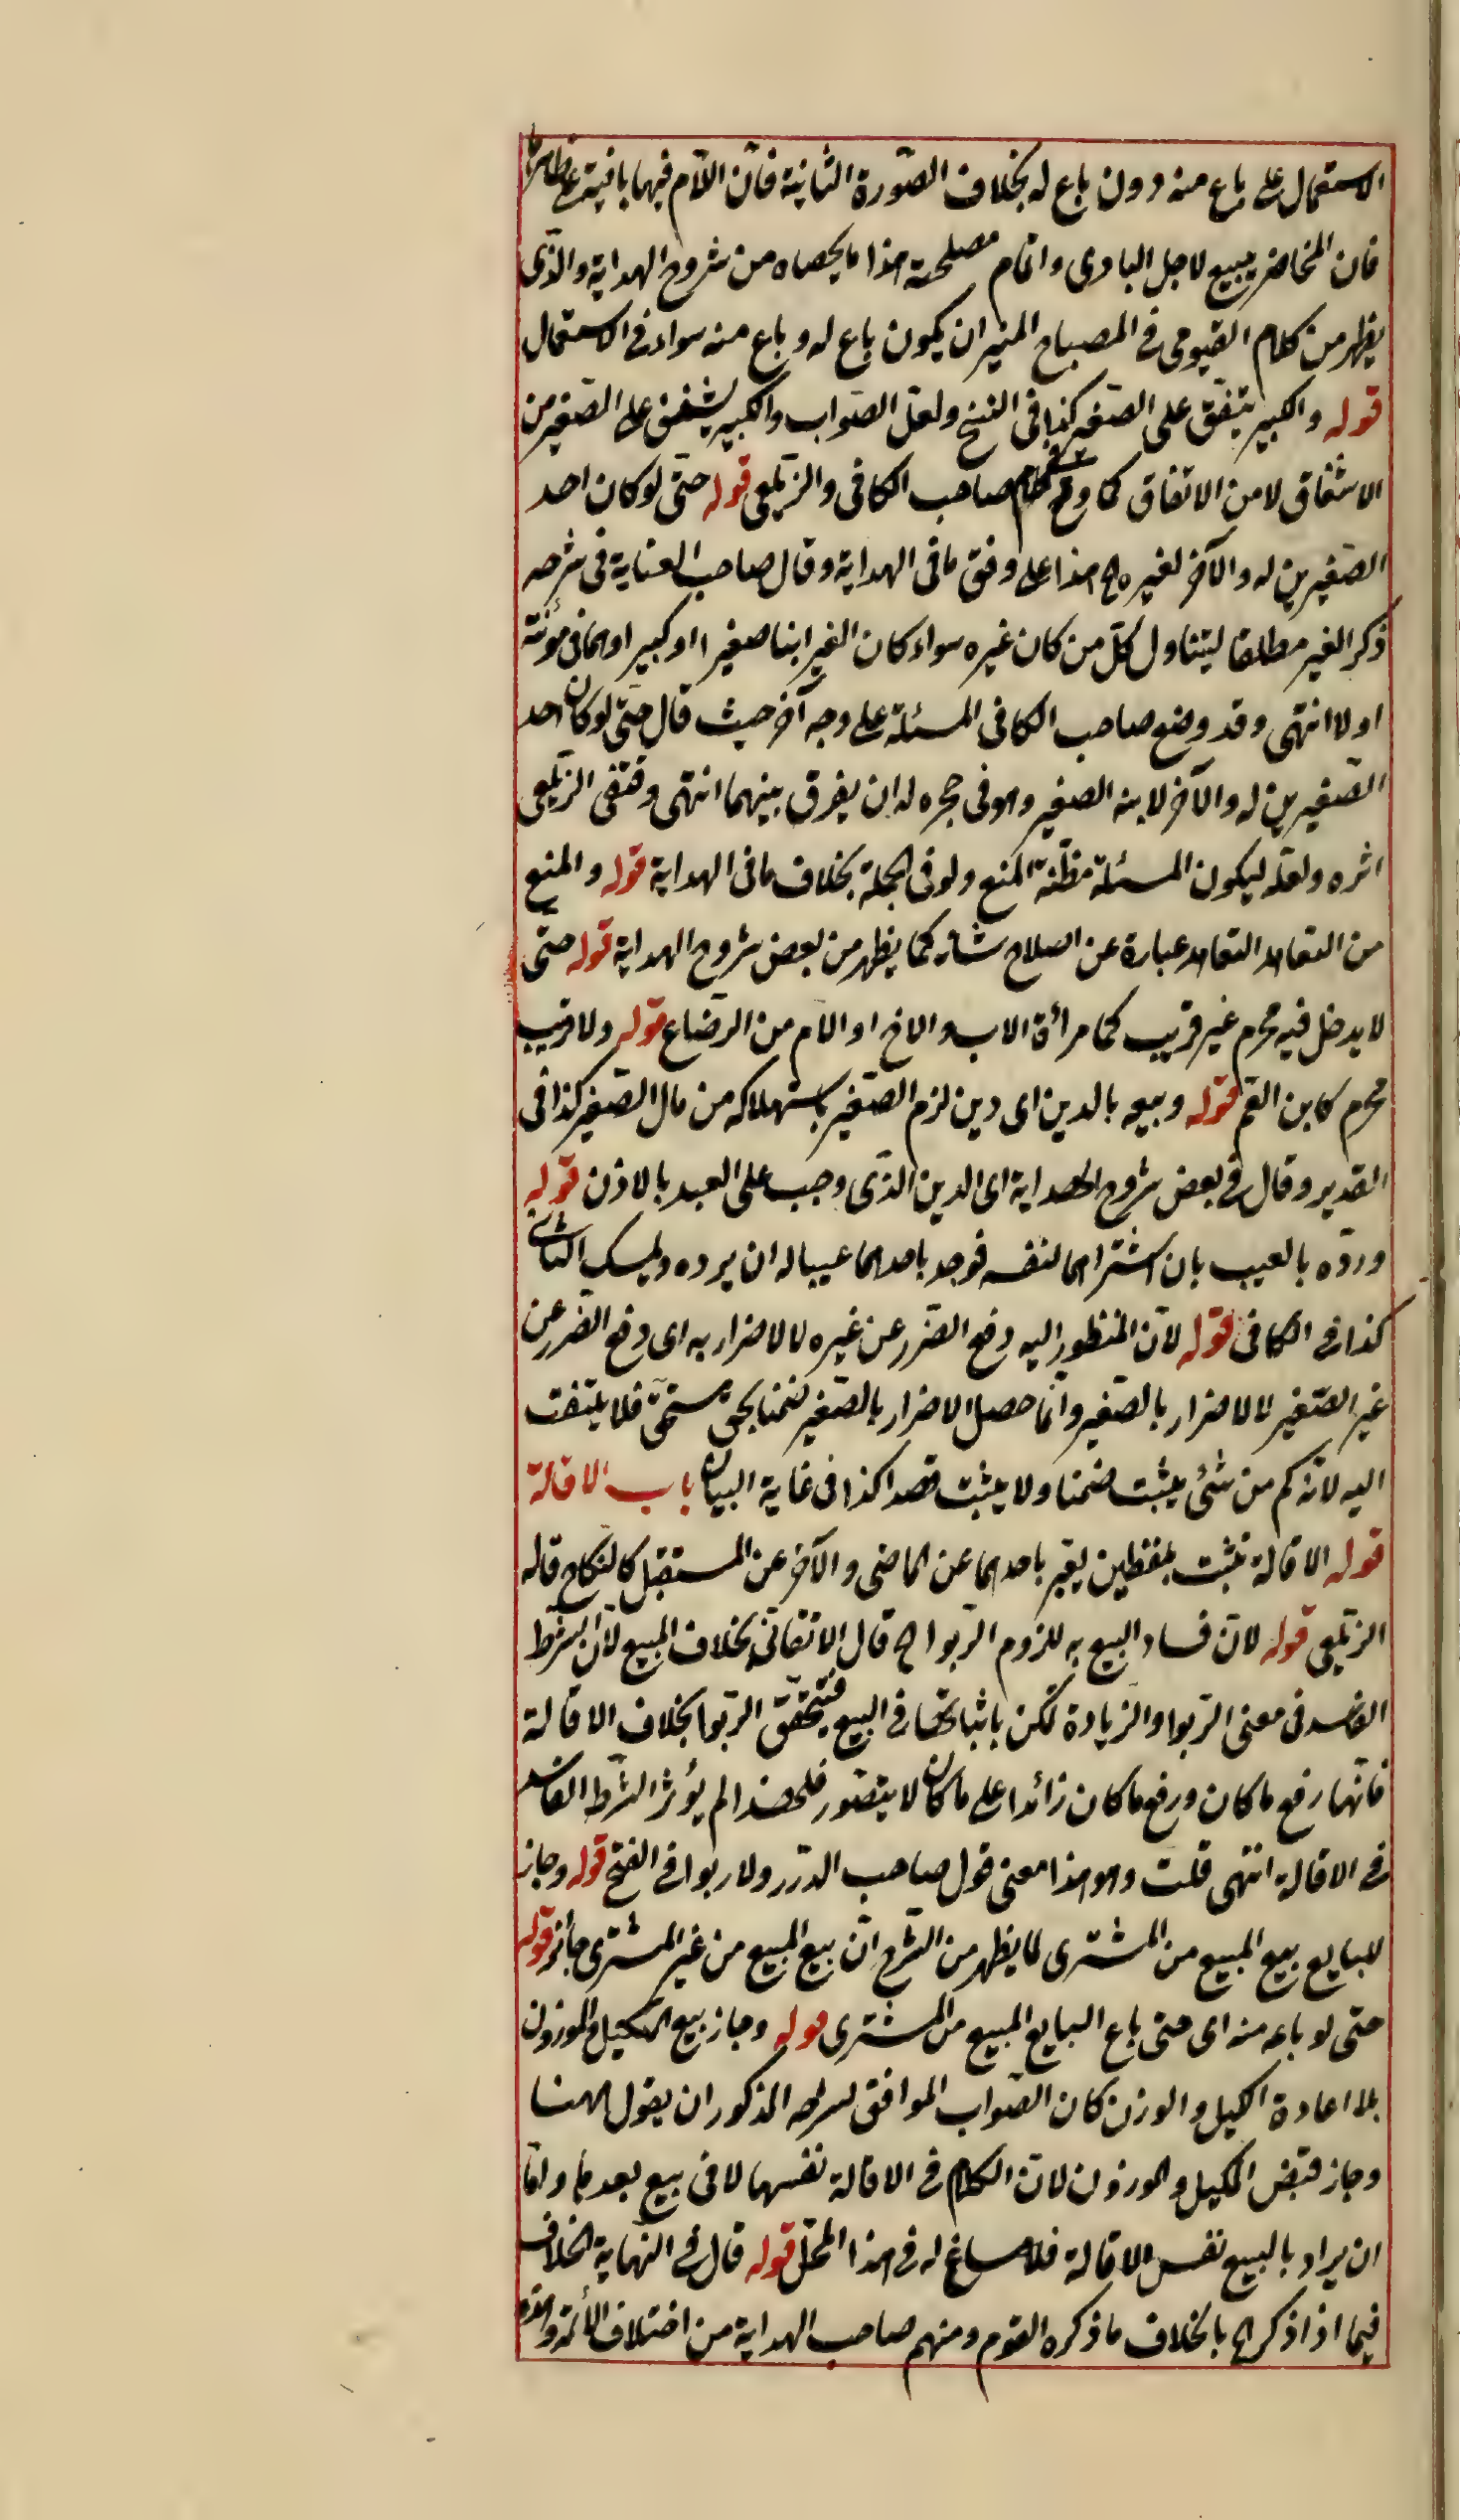 الاستعمال على باع منه دون باع له بخلاف الصّورة الثانية فانّ اللّام فيها باقية على ظاهرها
فان الحاضر يبيع لاجل البادى واتمام مصلحته هذا ما يحصاه من شروح الهداية والذى
يظهر من كلام الفيومى فى المصباح المنير ان يكون باع له وباع منه سواء فى الاستعمال
قوله والكبير يتفق على الصّغير كذا فى النسخ ولعلّ الصّواب والكبير يشفق على الصّغير من
الاشفاق لا من الاتفاق كما وقع فى كلام صاحب الكافى والزّيلعى قوله حتّى لو كان احد
الصّغيرين له والآخر لغيره الخ هذا على وفق ما فى الهداية وقال صاحب العناية فى شرحه
ذكر الغير مطلقا ليتناول كلّ من كان غيره سواء كان الغير ابنا صغيرا او كبير او هما فى مؤنته
او لا انتهى وقد وضع صاحب الكافى المسئلة على وجه آخر حيث قال حتّى لو كان احد
الصّغيرين له والآخر لابنه الصغير وهو فى حجره له ان يفرق بينهما انتهى وقتفى الزّيلعى
اثره ولعله ليكون المسئلة مظنّة المنع ولو فى الجملة بخلاف ما فى الهداية قوله والمنع
من التعاهد التعاهد عبارة عن اصلاح شانه كما يظهر من بعض شروح الهداية قوله حتّى
لا يدخل فيه محرم غير قريب كما مرأة الاب والاخ او الام من الرّضاع قوله ولا قريب
محرم كابن العم قوله وبيعه بالدين اى دين لزم الصّغير باستهلاكه من مال الصّغير كذا فى
القدير وقال فى بعض شروح الهداية اى الدين الذّى وجب على العبد بالاذن قوله
وردّه بالعيب بان اشتراهما لنفسه فوجد باحدهما عيبا له ان يرده ويمسك الثانى
كذا فى الكافى قوله لانّ المنظور اليه دفع الضّرر عن غيره لا الاضرار به اى دفع الضّرر عن
غير الصّغير لا الاضرار بالصّغير وانّما حصل الاضرار بالصّغير ضمنا بحق مستحقّ فلا يلتفت
اليه لانّه كم من شئ يثبت ضمنا ولا يثبت قصدا كذا فى غاية البيان باب الاقالة
قوله الاقالة تثبت بلفظين يعبّر باحدهما عن الماضى والآخر عن المستقبل كالنكاح قاله
الزّيلعى قوله لانّ فساد البيع به للزوم الرّبوا الخ قال الاتقانى بخلاف المبيع لانّ الشّرط
الفاسد فى معنى الرّبوا والزّيادة لكن باثباتها فى البيع فيتحقّق الرّبوا بخلاف الاقالة
فانّها رفع ما كان ورفع ما كان زائدا على ما كان لا يتصّور فلهذا لم يؤثر الشّرط الفاسد
فى الاقالة انتهى قلت وهو هذا معنى قول صاحب الدّرر ولا ربوا فى الفسخ قوله وجاز
للبايع بيع المبيع من المشترى لما يظهر من الشّرح انّ بيع المبيع من غير المشترى جائز قوله
حتى لو باعه منه اى حتى باع البايع المبيع من المشترى قوله وجاز بيع المكيل والموزون
بلا اعادة الكيل والوزن كان الصّواب الموافق لشرحه المذكور ان يقول ههنا
وجاز قبض المكيل والموزون لانّ الكلام فى الاقالة نفسها لا فى بيع بعدها وامّا
ان يراد بالبيع نفس الاقالة فلا مساغ له فى هذا المحلّ قوله قال فى النّهاية الخلاف
فيما اذا ذكر الخ بالخلاف ما ذكره القوم ومنهم صاحب الهداية من اختلاف الأئمة وهذه